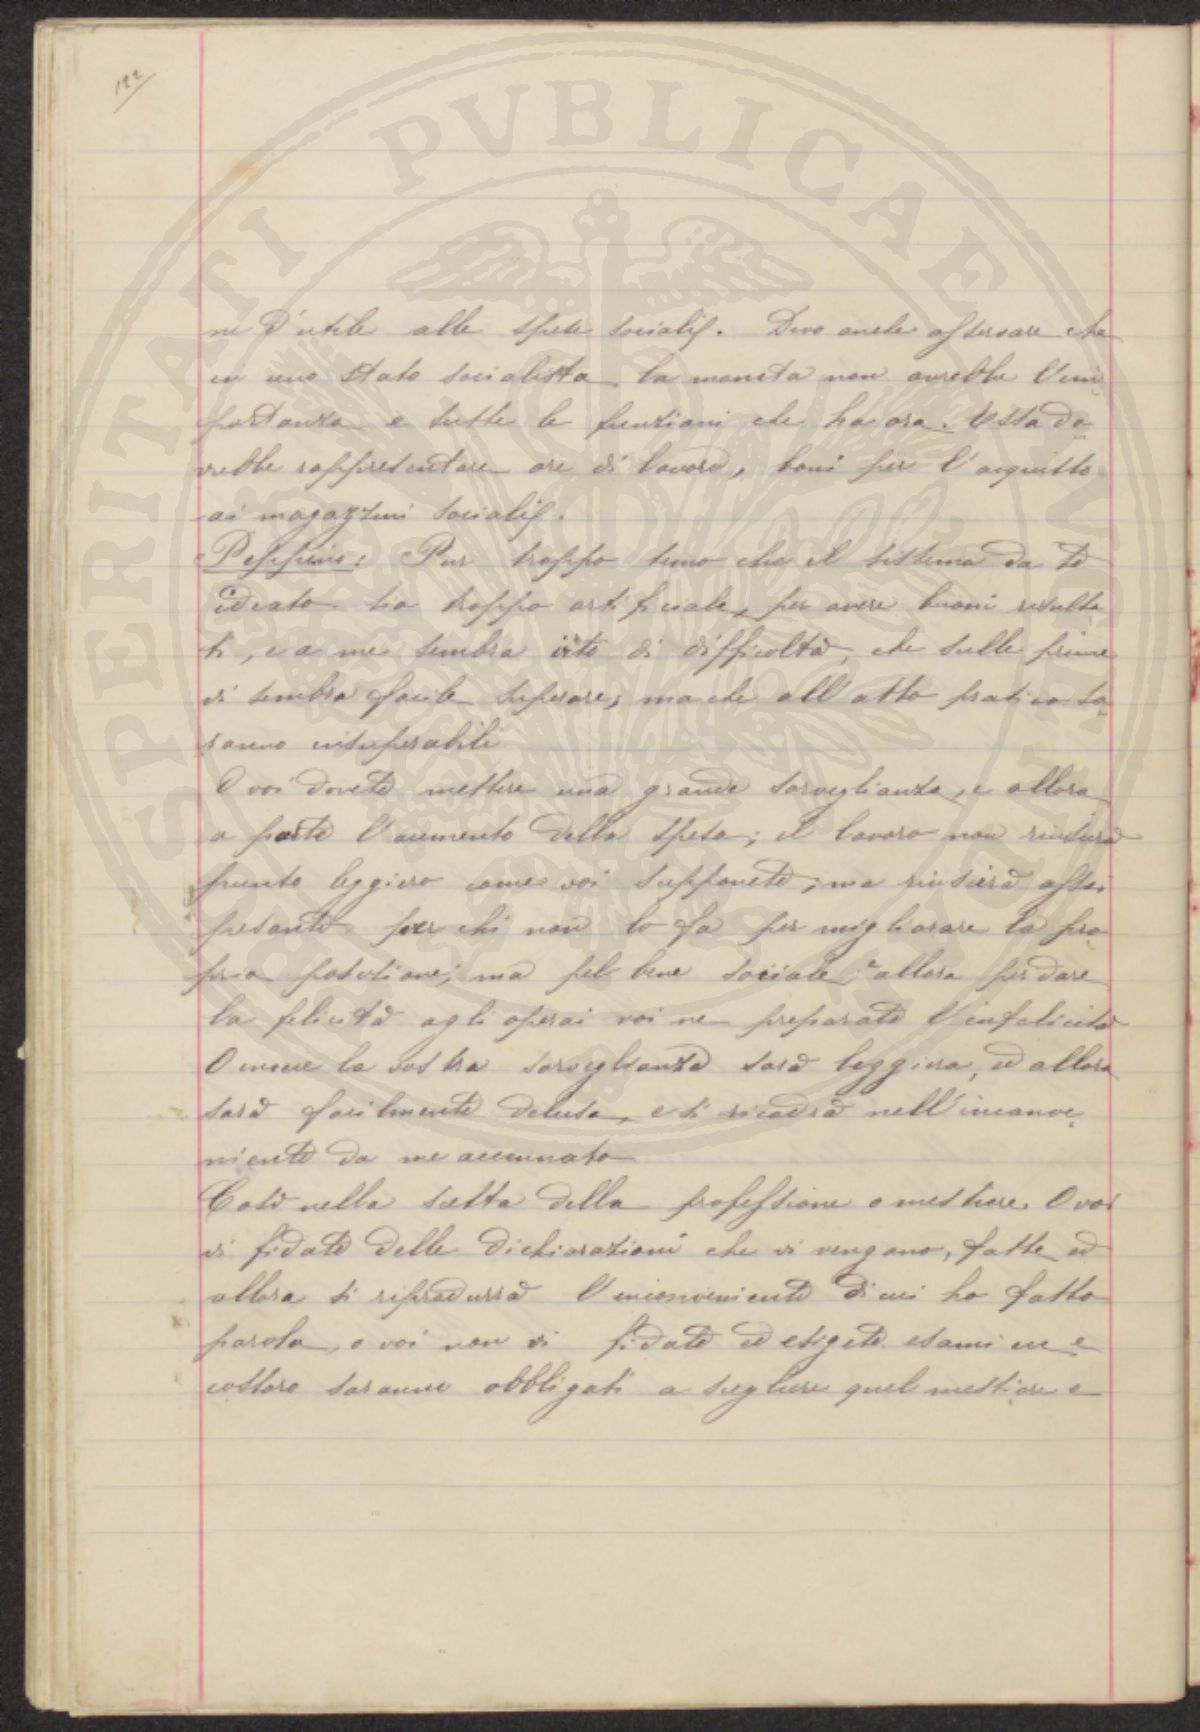 122
SPERITATI PUBLICAE
ne d'utile alle spese sociali. Devo anche osservare che
in uno Stato socialista la moneta non avrebbe l'im¬
portanza e tutte le funzioni che ha ora. Essa do¬
vrebbe rappresentare ore di lavoro, boni per l'acquisto
ai magazzini sociali.
Peppino: Pur troppo temo che il sistema da te
ideato sia troppo artificiale, per avere buoni risulta
ti, e a me sembra irto di difficoltà, che sulle prime
vi sembra facile superare, ma che all'atto pratico sa¬
ranno insuperabili
O voi dovete mettere una grande sorveglianza, e allora
a parte l'aumento della spesa; il lavoro non riuscirà
punto leggiero come voi supponete; ma riuscirà assai
pesante per chi non lo fa per migliorare la pro¬
pria posizione; ma pel bene sociale; allora per dare
la felicità agli operai voi ne preparate l'infelicità
O invece la vostra sorveglianza sarà leggiera, ed allora
sarà facilmente delusa, e si ricadrà nell'inconve¬
niente da me accennato
Così nella scelta della professione o mestiere. O voi
vi fidate delle dichiarazioni che vi vengano, fatte ed
allora si riprodurrà l'inconveniente di cui ho fatto
parola, o voi non vi fidate ed esigete esami e
costoro saranno obbligati a scegliere quel mestiere o